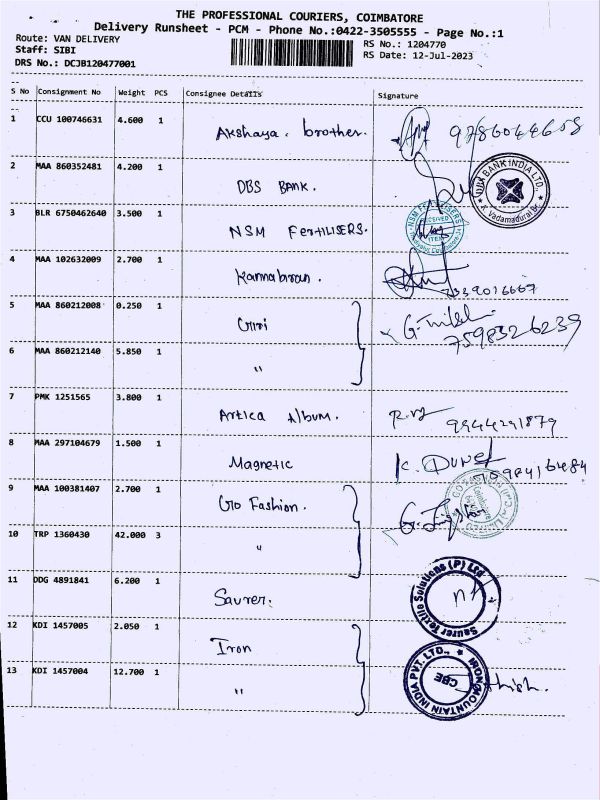 THE PROFESSIONAL COURIERS, COIMBATORE
Delivery Runsheet - PCM - Phone No.:0422-3505555 - Page No.:1
Route: VAN DELIVERY
RS No.: 1204770
Staff: SIBI
RS Date: 12-Jul-2023
DRS No.: DCJB120477001
S No Consignment No Weight PCS Consignee Details Signature
1 CCU 100746631 4.600 1 Akshaya. brother.
2 MAA 860352481 4.200 1 DBS BANK. BANK INDIA LTD.,
3 BLR 6750462640 3.500 1 NSM FERTILISERS. RECEIVED
4 MAA 102632009 2.700 1
5 MAA 860212008 0.250 1 7598326239
6 MAA 860212140 5.850 1 "
7 PMK 1251565 3.800 1 Artica Album. 9944291879
8 MAA 297104679 1.500 1 Magnetic
9 MAA 100381407 2.700 1 Go Fashion.
10 TRP 1360430 42.000 3 "
11 DDG 4891841 6.200 1 Saurer. Saurer Textile Solutions (P) Ltd
12 KDI 1457005 2.050 1 Iron
13 KDI 1457004 12.700 1 " IRONMOUNTAIN INDIA PVT. LTD., CBE